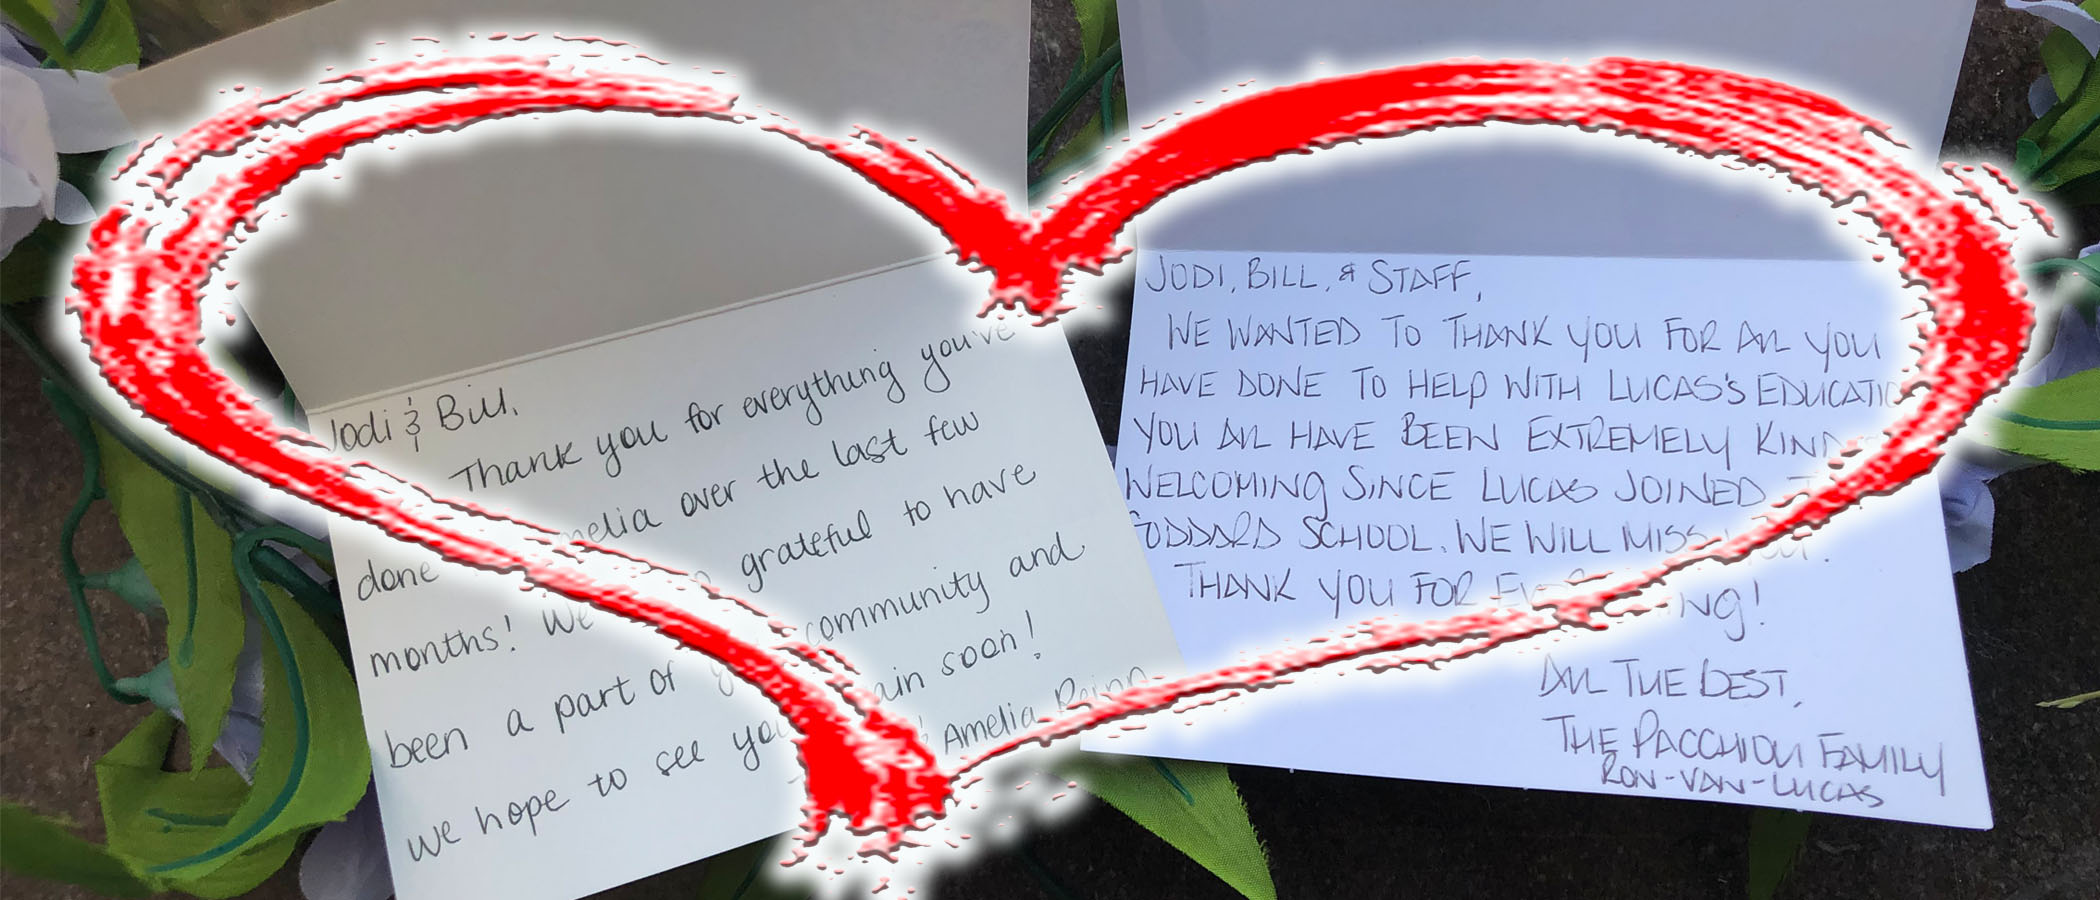 Jodi & Bill,
Thank you for everything you've
done Amelia over the last few
months! We grateful to have
been a part of community and
we hope to see you soon!
Amelia
JODI, BILL, & STAFF,
WE WANTED TO THANK YOU FOR ALL YOU
HAVE DONE TO HELP WITH LUCAS'S EDUCATION
YOU ALL HAVE BEEN EXTREMELY KIND
WELCOMING SINCE LUCAS JOINED
GODDARD SCHOOL. WE WILL MISS
THANK YOU FOR EVERYTHING!
ALL THE BEST,
THE PACCHIOLI FAMILY
RON-VAN-LUCAS